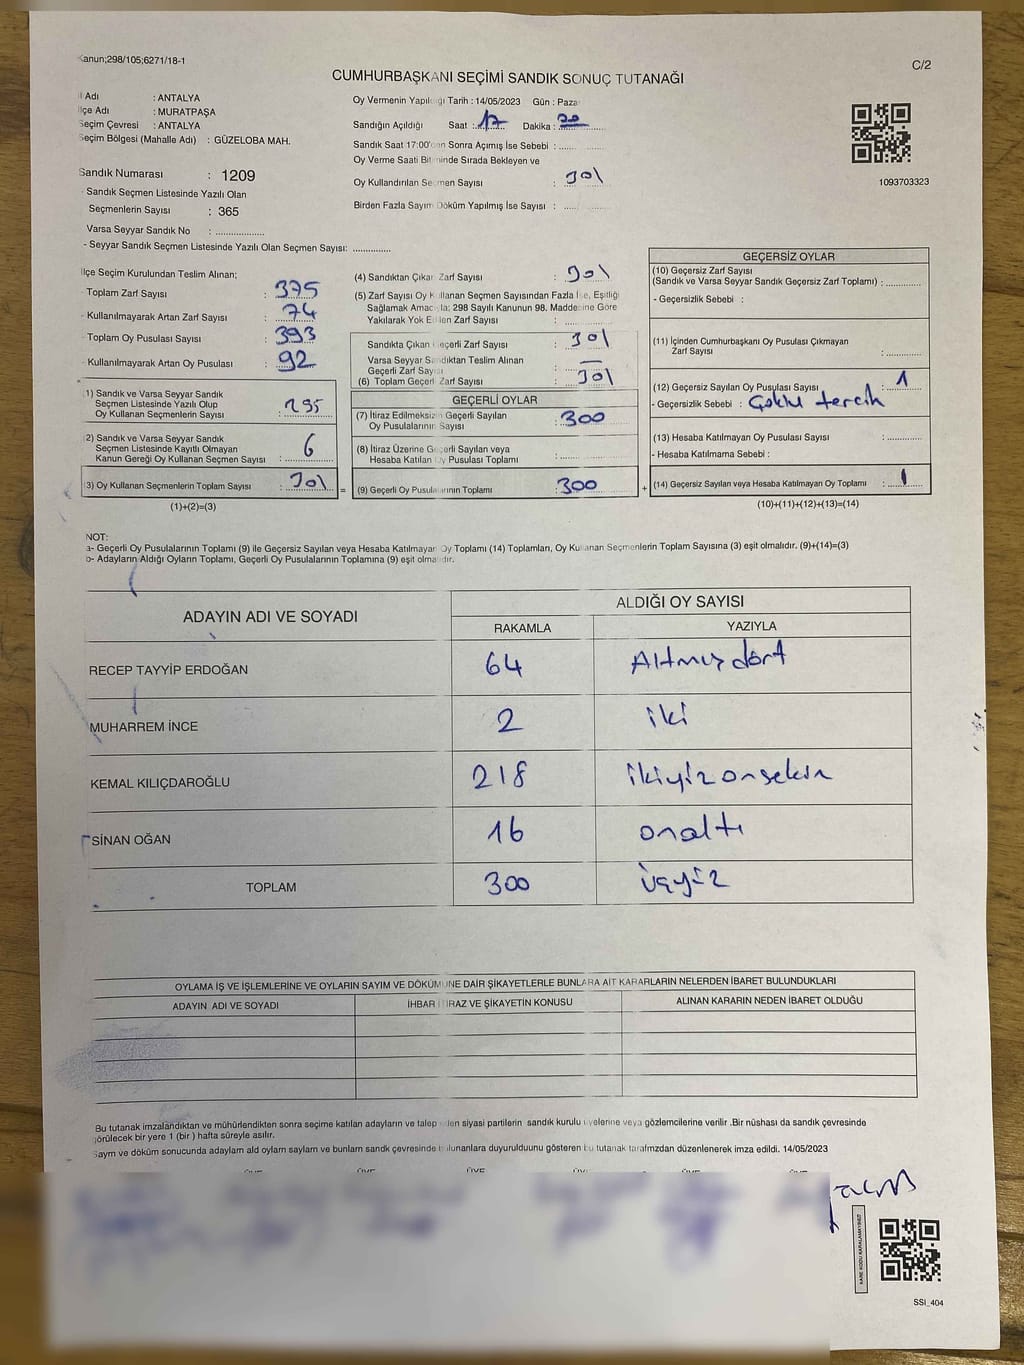 Kanun;298/105;6271/18-1
C/2
CUMHURBAŞKANI SEÇİMİ SANDIK SONUÇ TUTANAĞI
İl Adı : ANTALYA
İlçe Adı : MURATPAŞA
Seçim Çevresi : ANTALYA
Seçim Bölgesi (Mahalle Adı) : GÜZELOBA MAH.
Sandık Numarası : 1209
Sandık Seçmen Listesinde Yazılı Olan
Seçmenlerin Sayısı : 365
Varsa Seyyar Sandık No : ..................
- Seyyar Sandık Seçmen Listesinde Yazılı Olan Seçmen Sayısı: ..............
Oy Vermenin Yapıldığı Tarih : 14/05/2023 Gün : Pazar
Sandığın Açıldığı Saat : 17 Dakika : 20
Sandık Saat 17:00'dan Sonra Açımış İse Sebebi : ......
Oy Verme Saati Bitiminde Sırada Bekleyen ve
Oy Kullandırılan Seçmen Sayısı : 301
Birden Fazla Sayım Döküm Yapılmış İse Sayısı : ......
1093703323
İlçe Seçim Kurulundan Teslim Alınan;
Toplam Zarf Sayısı : 375
Kullanılmayarak Artan Zarf Sayısı : 74
Toplam Oy Pusulası Sayısı : 393
Kullanılmayarak Artan Oy Pusulası : 92
1) Sandık ve Varsa Seyyar Sandık
Seçmen Listesinde Yazılı Olup
Oy Kullanan Seçmenlerin Sayısı : 295
2) Sandık ve Varsa Seyyar Sandık
Seçmen Listesinde Kayıtlı Olmayan
Kanun Gereği Oy Kullanan Seçmen Sayısı : 6
3) Oy Kullanan Seçmenlerin Toplam Sayısı : 301 =
(1)+(2)=(3)
(4) Sandıktan Çıkan Zarf Sayısı : 301
(5) Zarf Sayısı Oy Kullanan Seçmen Sayısından Fazla İse, Eşitliği
Sağlamak Amacıyla; 298 Sayılı Kanunun 98. Maddesine Göre
Yakılarak Yok Edilen Zarf Sayısı : ..............
Sandıkta Çıkan Geçerli Zarf Sayısı : 301
Varsa Seyyar Sandıktan Teslim Alınan
Geçerli Zarf Sayısı : —
(6) Toplam Geçerli Zarf Sayısı : 301
GEÇERLİ OYLAR
(7) İtiraz Edilmeksizin Geçerli Sayılan
Oy Pusulalarının Sayısı : 300
(8) İtiraz Üzerine Geçerli Sayılan veya
Hesaba Katılan Oy Pusulası Toplamı : ..............
(9) Geçerli Oy Pusulalarının Toplamı : 300 +
GEÇERSİZ OYLAR
(10) Geçersiz Zarf Sayısı
(Sandık ve Varsa Seyyar Sandık Geçersiz Zarf Toplamı) : ............
- Geçersizlik Sebebi :
(11) İçinden Cumhurbaşkanı Oy Pusulası Çıkmayan
Zarf Sayısı : ............
(12) Geçersiz Sayılan Oy Pusulası Sayısı : 1
- Geçersizlik Sebebi : Çoklu tercih
(13) Hesaba Katılmayan Oy Pusulası Sayısı : ............
- Hesaba Katılmama Sebebi :
(14) Geçersiz Sayılan veya Hesaba Katılmayan Oy Toplamı : 1
(10)+(11)+(12)+(13)=(14)
NOT:
a- Geçerli Oy Pusulalarının Toplamı (9) ile Geçersiz Sayılan veya Hesaba Katılmayan Oy Toplamı (14) Toplamları, Oy Kullanan Seçmenlerin Toplam Sayısına (3) eşit olmalıdır. (9)+(14)=(3)
b- Adayların Aldığı Oyların Toplamı, Geçerli Oy Pusulalarının Toplamına (9) eşit olmalıdır.
ADAYIN ADI VE SOYADI ALDIĞI OY SAYISI
RAKAMLA YAZIYLA
RECEP TAYYİP ERDOĞAN 64 Altmış dört
MUHARREM İNCE 2 iki
KEMAL KILIÇDAROĞLU 218 ikiyüzonsekiz
SİNAN OĞAN 16 onaltı
TOPLAM 300 üçyüz
OYLAMA İŞ VE İŞLEMLERİNE VE OYLARIN SAYIM VE DÖKÜMÜNE DAİR ŞİKAYETLERLE BUNLARA AİT KARARLARIN NELERDEN İBARET BULUNDUKLARI
ADAYIN ADI VE SOYADI İHBAR İTİRAZ VE ŞİKAYETİN KONUSU ALINAN KARARIN NEDEN İBARET OLDUĞU
Bu tutanak imzalandıktan ve mühürlendikten sonra seçime katılan adayların ve talep eden siyasi partilerin sandık kurulu üyelerine veya gözlemcilerine verilir .Bir nüshası da sandık çevresinde
görülecek bir yere 1 (bir ) hafta süreyle asılır.
Sayım ve döküm sonucunda adaylam ald oylam saylam ve bunlam sandk çevresinde bulunanlara duyurulduunu gösteren bu tutanak tarafmzdan düzenlenerek imza edildi. 14/05/2023
SSI_404